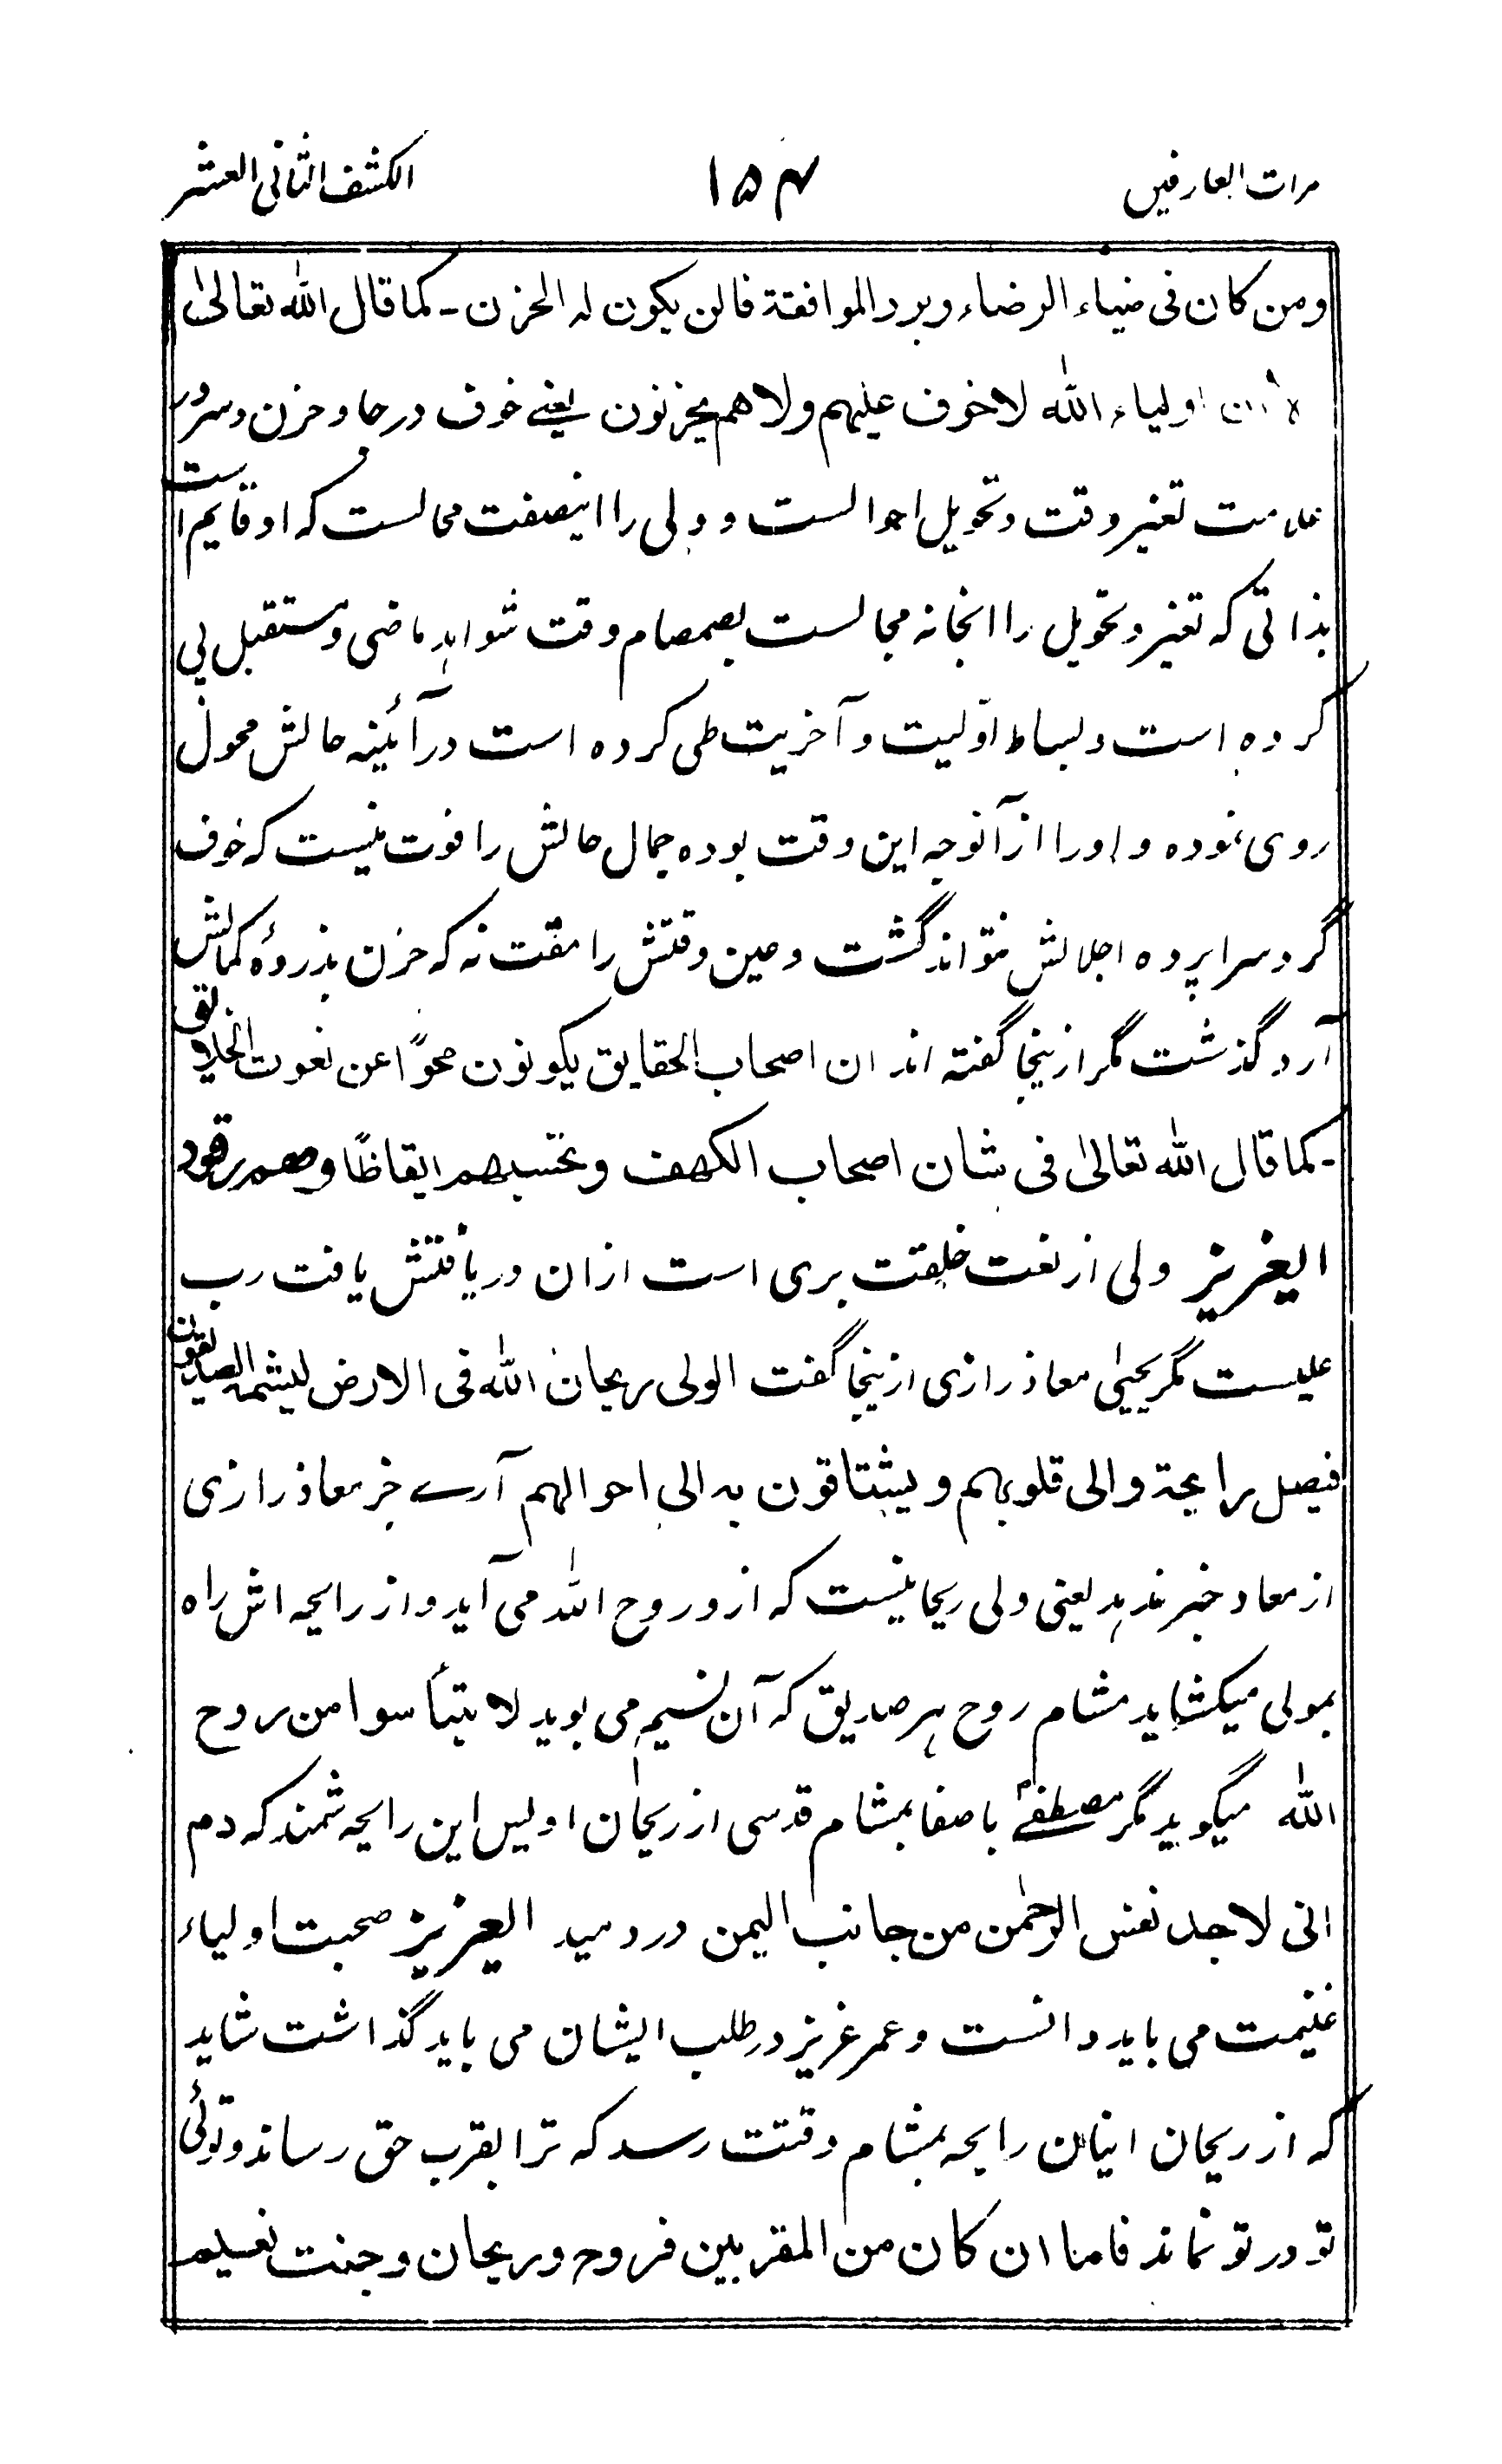 مرات العارفین ۱۵۴ الکشف الثانی العشر
ومن کان فی ضیاء الرضاء وبرد الموافقة فالن یکون له الحزن - کما قال الله تعالیٰ
ان اولیاء الله لاخوف علیهم ولا هم یحزنون یعنے خوف و رجا و حزن و سرور
علامت تغیر وقت و تحویل احوالست و ولی را اینصفت محالست که او قایم است
بذاتی که تغیر و تحویل را انجا نه مجالست بصمصام وقت شواهد ماضی و مستقبل پی
کرده است و بساط اوّلیت و آخریت طی کرده است در آئینه حالش محول
روی نموده و اورا از آنوجه این وقت بوده جمال حالش را فوت نیست که خوف
گرد سراپرده اجلالش نتواند گشت و حین وقتش را مقت نه که حزن بذروۀ کمالش
آرد گذشت مگر ازینجا گفته اند ان اصحاب الحقایق یکونون محوًا عن نعوت الخلایق
- کما قال الله تعالیٰ فی شان اصحاب الکهف و تحسبهم ایقاظًا وهم رقود
العزیز ولی از نعت خلقت بری است ازان دریافتش یافت رب
علیست مگر یحییٰ معاذ رازی ازینجا گفت الولی ریحان الله فی الارض لیشمه الصدیقون
فیصل رایحة والی قلوبهم ویشتاقون به الی احوالهم آرے جز معاذ رازی
از معاد خبر ندهد یعنی ولی ریحانیست که ازو روح الله می آید و از رایحه اش راه
بمولی میکشاید مشام روح هر صدیق که آن نسیم می بوید لا تیأسوا من روح
الله میگوید مگر مصطفےٰ باصفا بمشام قدسی از ریحان اویس این رایحه شمند که دم
انی لاجد نفس الرحمٰن من جانب الیمن دردمید العزیز صحبت اولیاء
غنیمت می باید دانست و عمر عزیز در طلب ایشان می باید گذاشت شاید
که از ریحان اینان رایحه بمشام وقتت رسد که ترا بقرب حق رساند و توئی
تو در تو نماند فاما ان کان من المقربین فروح وریحان وجنت نعیم